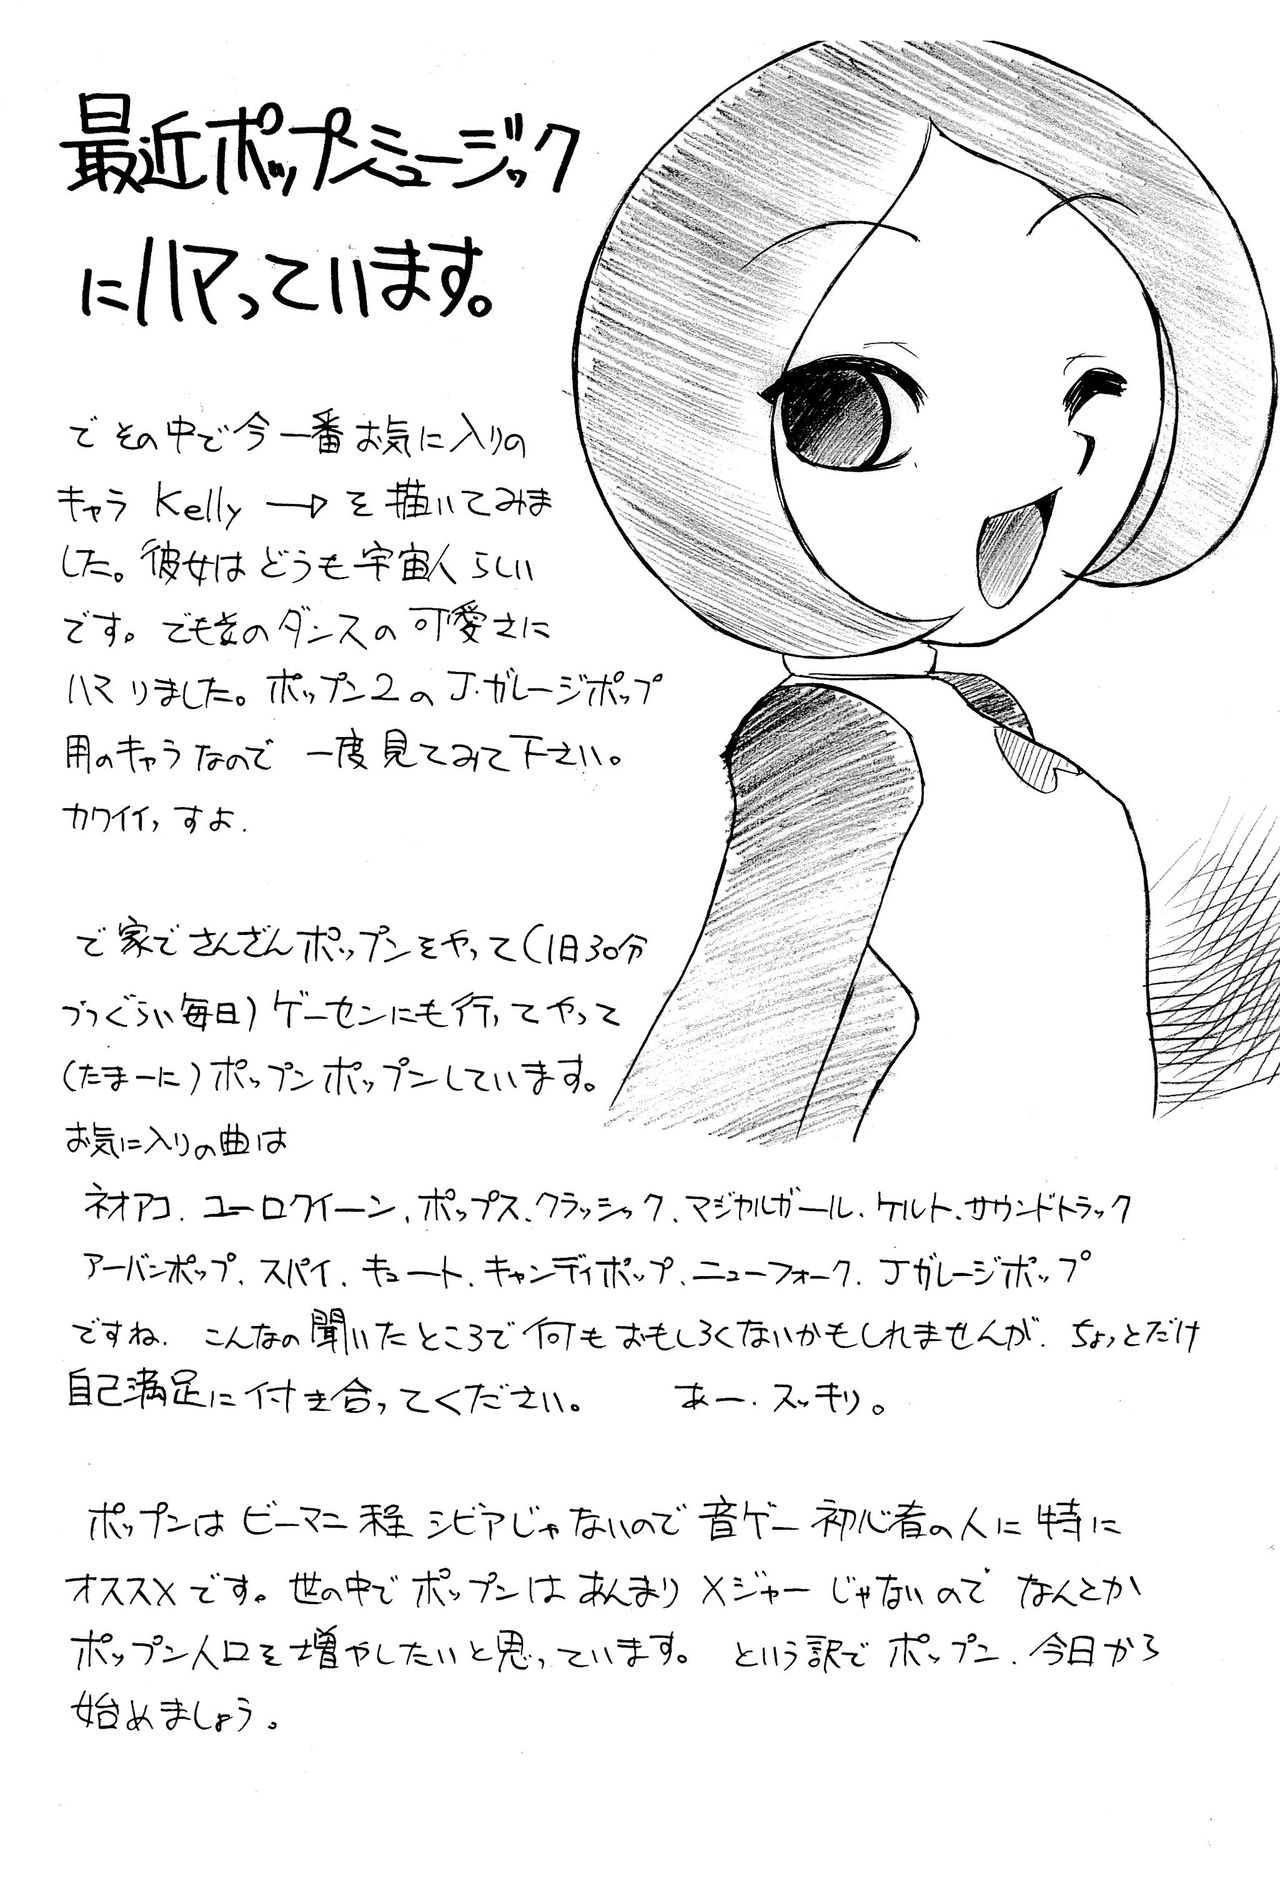 最近ポップンミュージック
にハマっています。
で その中で今一番お気に入りの
キャラ Kelly → を描いてみま
した。彼女はどうも宇宙人らしい
です。でも女のダンスの可愛さに
ハマりました。ポップン2のJ・ガレージポップ
用のキャラなので 一度見てみて下さい。
カワイイっすよ.
で家でさんざんポップンをやって(1日30分
づつぐらい毎日)ゲーセンにも行ってやって
(たまーに)ポップンポップンしています。
お気に入りの曲は
ネオアコ、ユーロクイーン、ポップス、クラッシック、マジカルガール、ケルト、サウンドトラック
アーバンポップ、スパイ、キュート、キャンディポップ、ニューフォーク、Jガレージポップ
ですね、こんなの聞いたところで何もおもしろくないかもしれませんが、ちょっとだけ
自己満足に付き合ってください。 あー、スッキリ。
ポップンはビーマニ程シビアじゃないので音ゲー初心者の人に特に
オススメです。世の中でポップンはあんまりメジャーじゃないので なんとか
ポップン人口を増やしたいと思っています。 という訳でポップン、今日から
始めましょう。